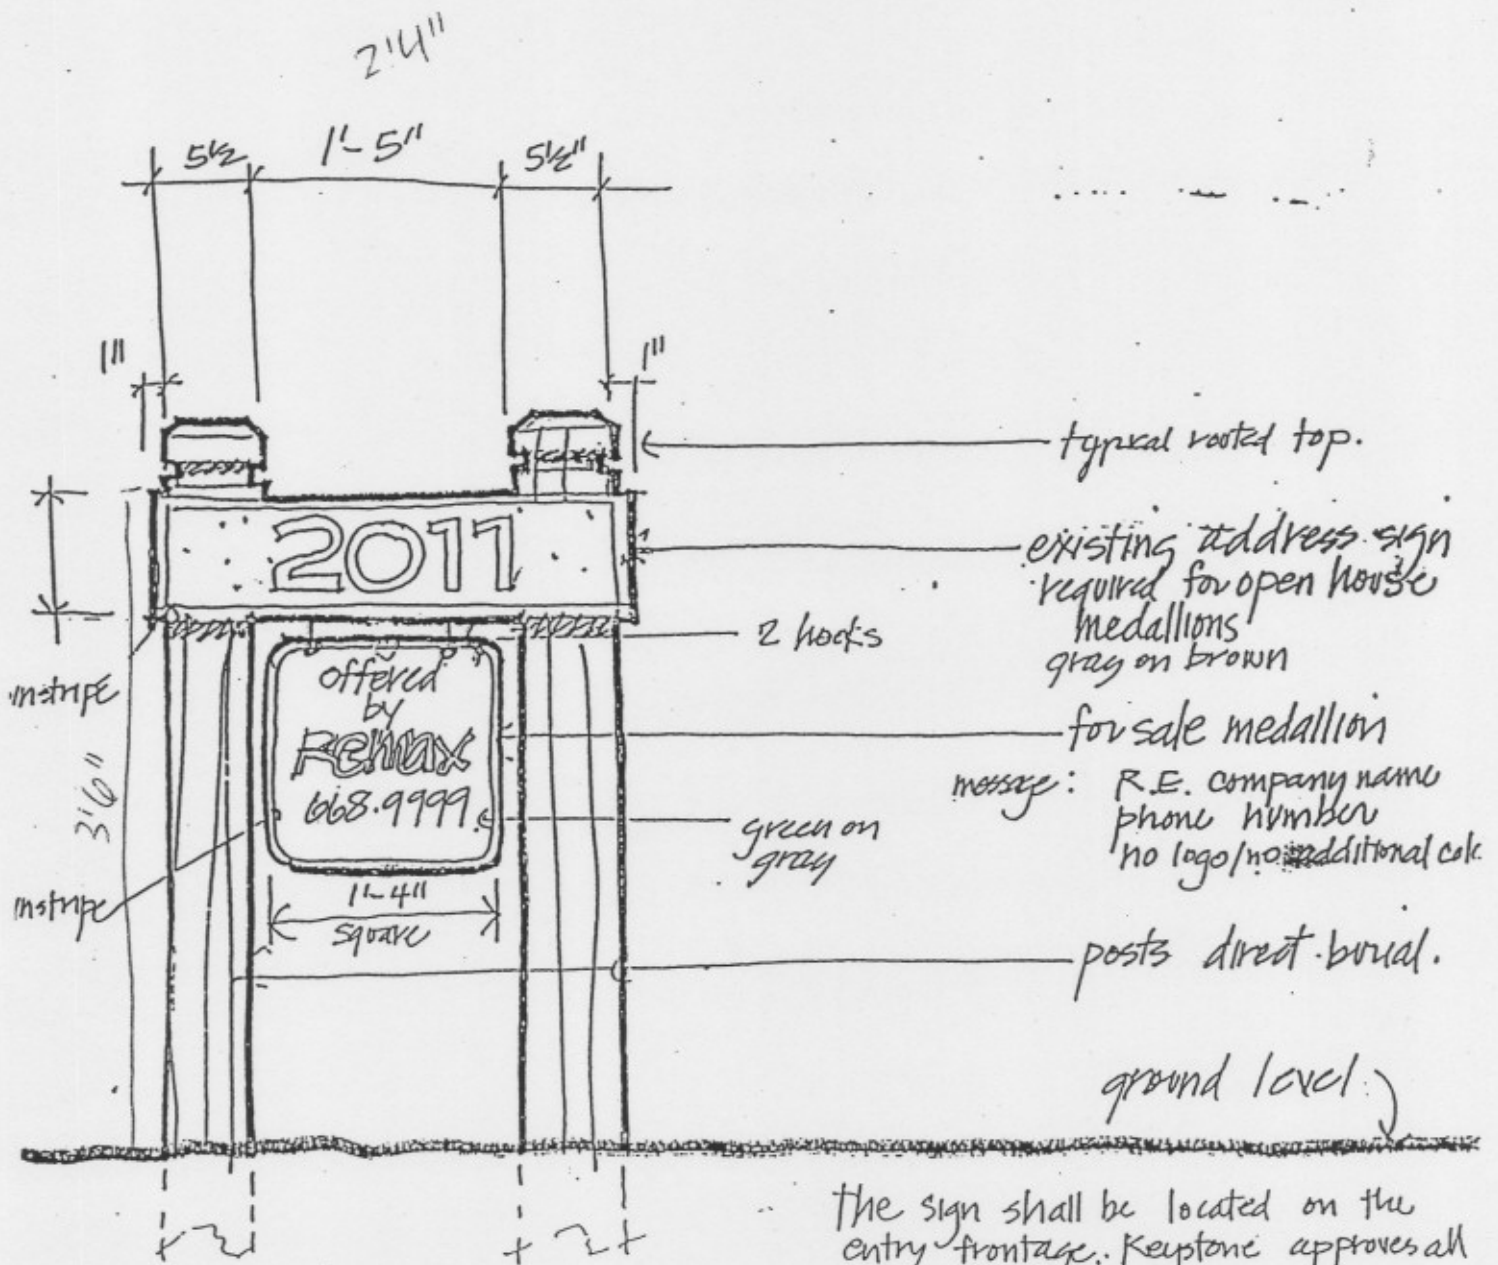 2'4"
5½ 1'-5" 5½"
1" 1"
typical routed top.
2011
existing address sign
required for open house
medallions
gray on brown
2 hooks
offered
by
Remax
668.9999
instripe
for sale medallion
message: R.E. company name
phone number
no logo/no additional
green on
gray
3'6"
instripe
1'-4"
square
posts direct burial.
ground level
the sign shall be located on the
entry frontage. Keystone approves all